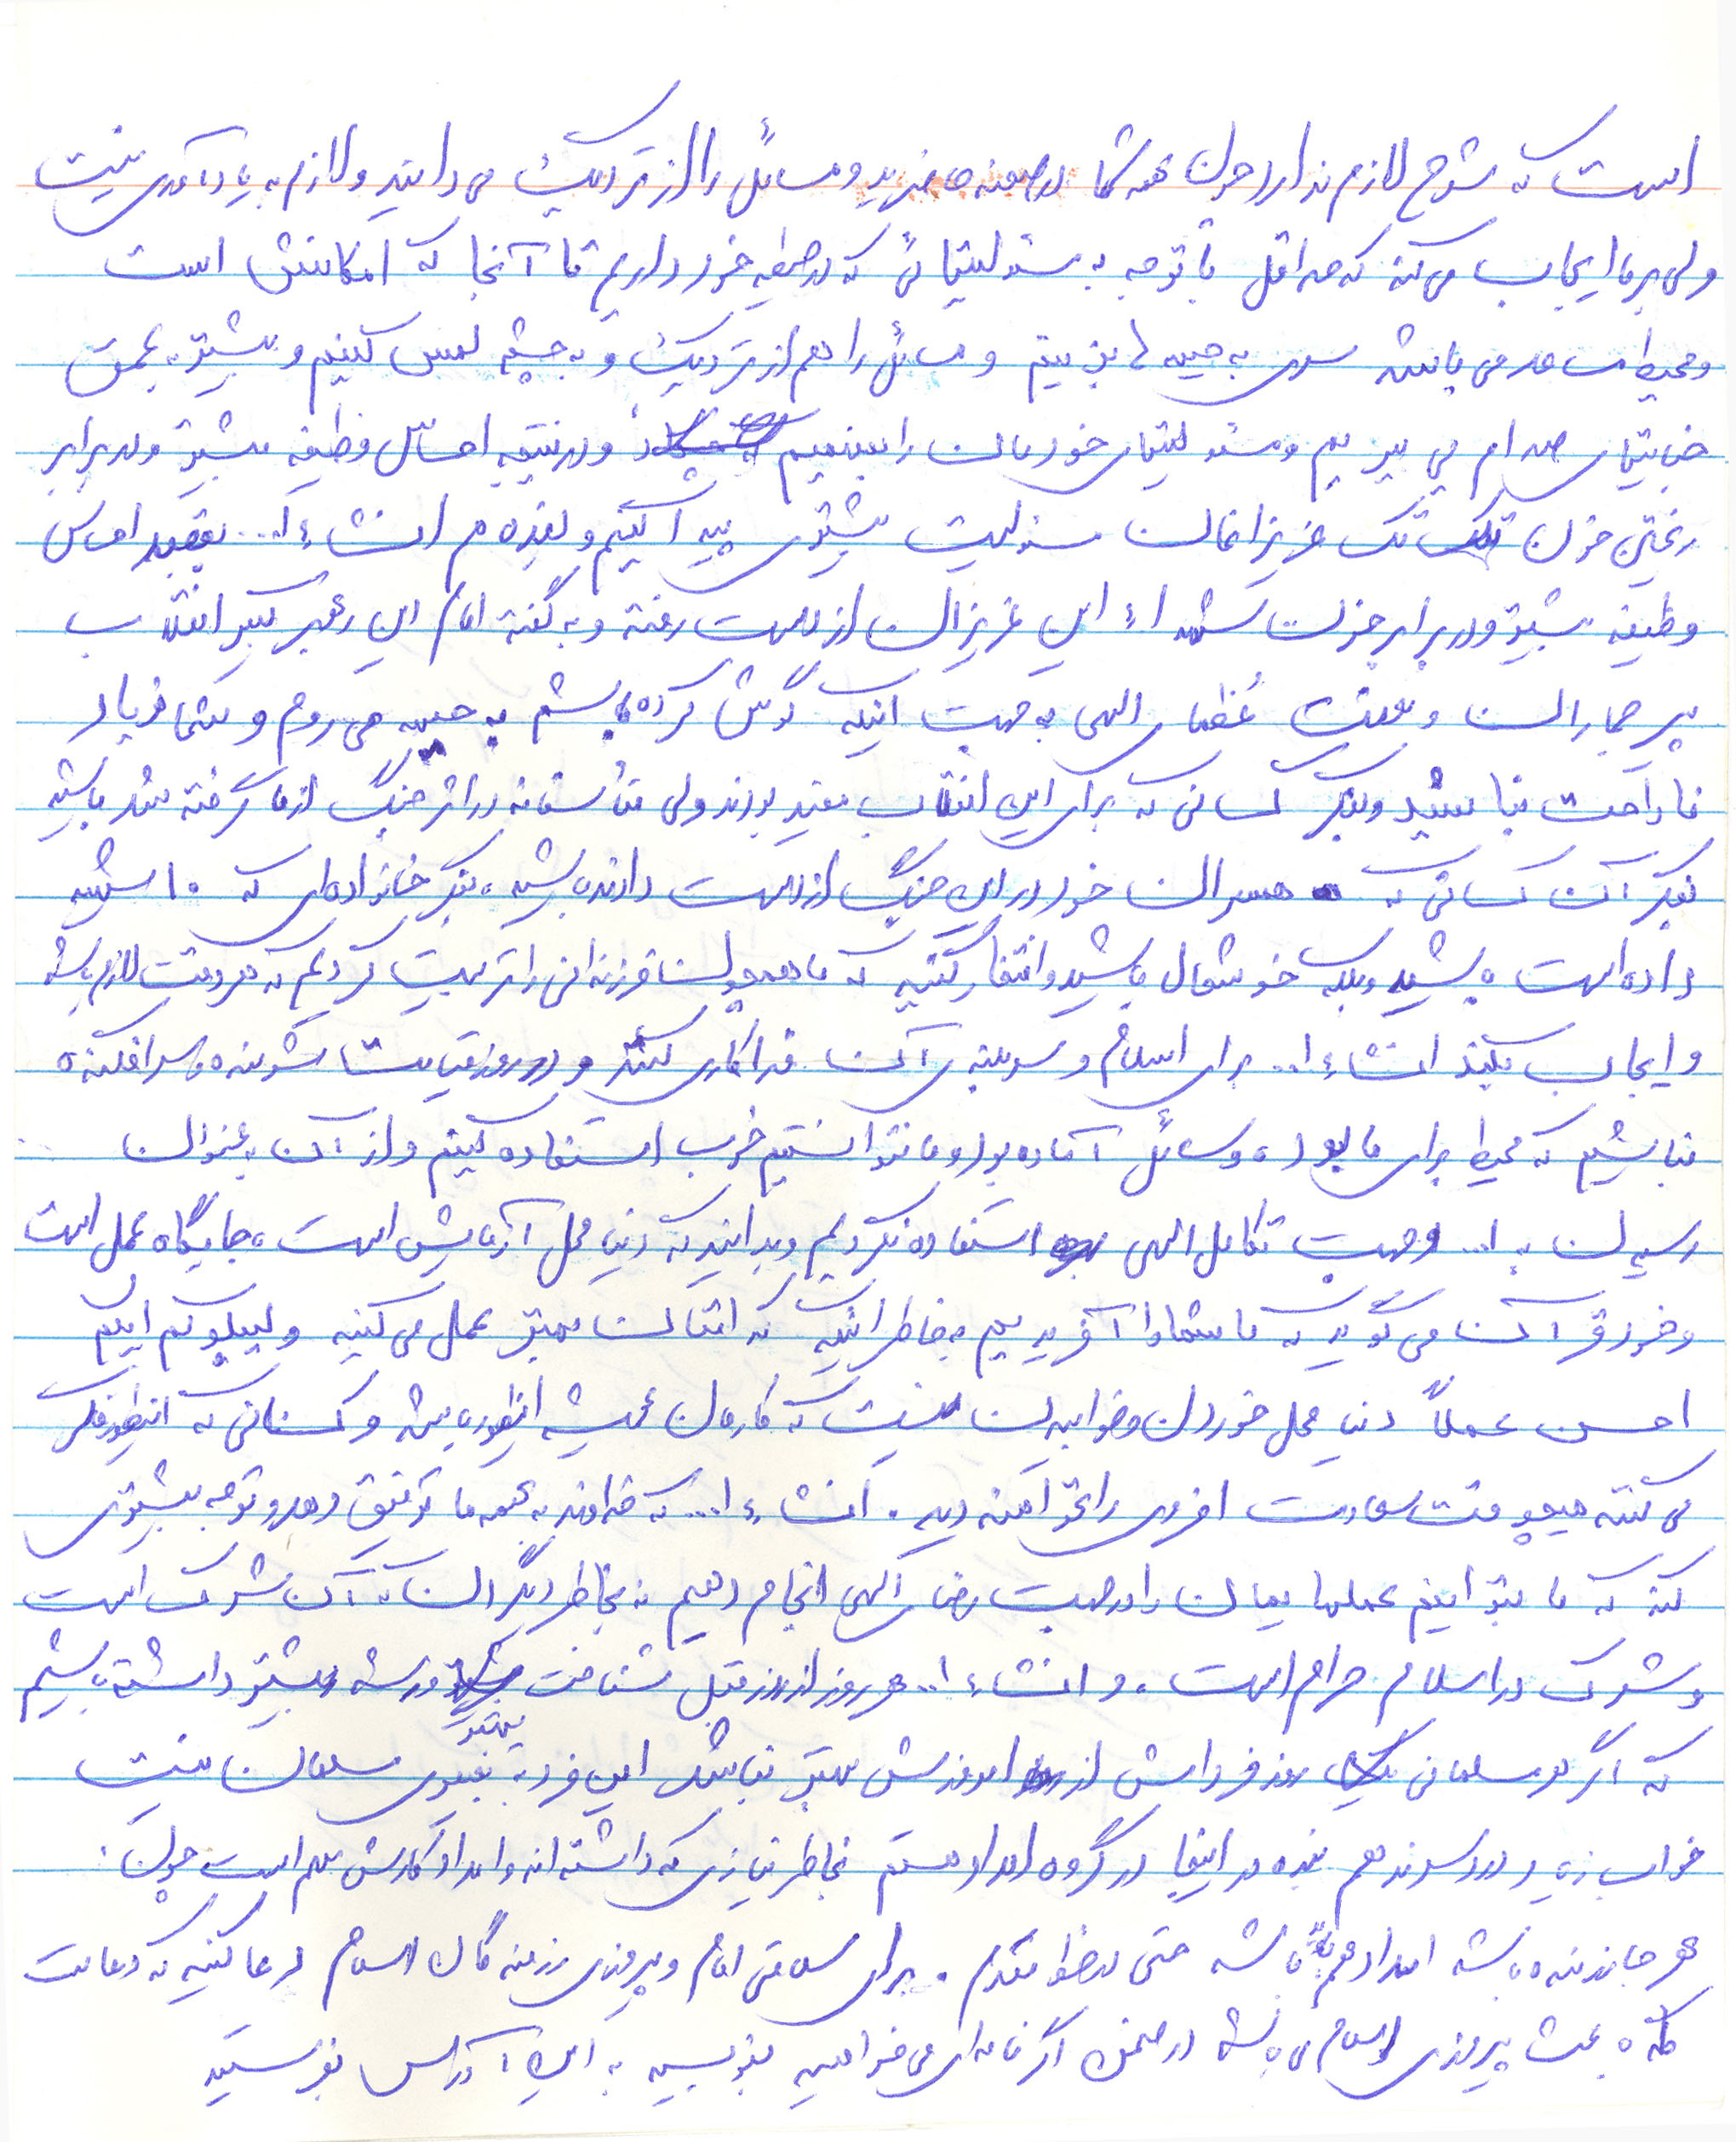 است که شرح لازم ندارد چون همه شما در صحنه حاضرید و مسائل را از نزدیک می دانید و لازم به یادآوری نیست
ولی بر ما ایجاب می کند که حداقل با توجه به مسئولیتهائی که در حیطه خود داریم تا آنجا که امکانش است
و محیط مساعد می باشد سری به جبهه ها بزنیم و مسائل را هم از نزدیک و به چشم لمس کنیم و بیشتر به عمق
جنایتهای صدام پی ببریم و مسئولیتهای خودمان را بفهمیم و در نتیجه احساس وظیفه بیشتر و در برابر
ریختن خون تک تک عزیزانمان مسئولیت بیشتری پیدا کنیم و بنده هم انشاء ا... بقصد احساس
وظیفه بیشتر و در برابر خون شهداء این عزیزان از دست رفته و به گفته امام این رهبر کبیر انقلاب
پیر جماران و نعمت عُظمای الهی به جهت اینکه گوش کرده باشم به جبهه می روم و شما زیاد
ناراحت نباشید و بفکر کسانی که برای این انقلاب مفید بودند ولی متأسفانه در اثر جنگ از ما گرفته شد باشید
بفکر آن کسانی که همسران خود در این جنگ از دست دادند باشید، بفکر خانواده ای که ۱۰ شهید
داده است باشید و بلکه خوشحال باشید و افتخار کنید که ما همچون فرزندانی را تربیت کردیم که هر وقت لازم باشد
و ایجاب بکند انشاء ا... برای اسلام و سربلندی آن فداکاری کنند و در روز قیامت شرمنده و سرافکنده
نباشیم که محیط برای ما بود، وسائل آماده بود و ما نتوانستیم خوب استفاده کنیم و از آن به عنوان
رسیدن به ا... و جهت تکامل الهی استفاده نکردیم و بدانید که دنیا محل آزمایش است، جایگاه عمل است
و خود قرآن می گوید که ما شما را آفریدیم به خاطر اینکه کدامتان بهتر عمل می کنید و لیبلوکم ایکم
احسن عملاً دنیا محل خوردن و خوابیدن نیست که کارمان همیشه اینطور باشد و کسانی که اینطور فکر
می کنند هیچ وقت سعادت اخروی را نخواهند دید. انشاء ا... که خداوند به همه ما توفیق دهد و توجه بیشتری
کند که ما بتوانیم عملهایمان را در جهت رضای الهی انجام دهیم نه بخاطر دیگران که آن شرک است
و شرک در اسلام حرام است، و انشاء ا... هر روز از روز قبل شناخت و رشد بیشتر داشته باشیم
بهتر
که اگر هر مسلمانی روز فردایش از امروزش بهتر نباشد این فرد به تعبیری مسلمان نیست
خواب زیاد و دردسر ندهم بنده در اینجا در گروه امداد هستم بخاطر نیازی که داشته اند و امداد کارش مهم است چون:
هر جا رزمنده باشد امداد هم باید باشد حتی در خط مقدم. برای سلامتی امام و پیروزی رزمندگان اسلام دعا کنید که دعایت
کلاً باعث پیروزی اسلام می باشد در ضمن اگر نامه ای می خواهید بنویسید به این آدرس بفرستید